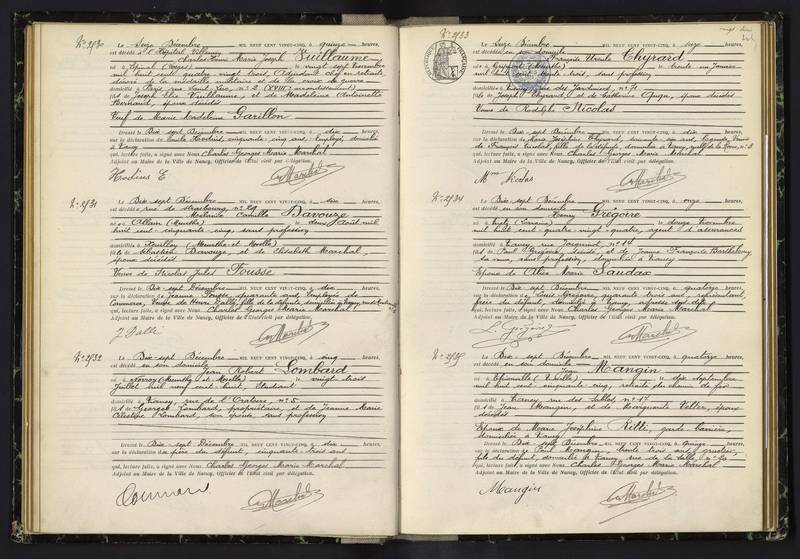 N: 2930
Le Seize Décembre MIL NEUF CENT VINGT-CINQ, à quinze heures,
est décédé à l'Hôpital Villemin
Marie Joseph Vuillaume
né à Epinal (Vosges) le vingt sept Novembre
mil huit cent quatre vingt trois, Adjudant Chef en retraite,
décoré de la médaille militaire et de la croix de guerre
domicilié à Paris, rue n: 2 (XVIII: arrondissement)
fils de Joseph Elie Vuillaume, et de Madeleine Antoinette
Bertrand, époux décédés
Veuf de Marie Madeleine Garillon
Dressé le Dix-sept Décembre MIL NEUF CENT VINGT-CINQ, à dix heures,
sur la déclaration de Emile cinquante cinq ans, employé, domicilié
à Nancy
qui, lecture faite, a signé avec Nous Charles Georges Marie Maréchal
Adjoint au Maire de la Ville de Nancy, Officier de l'Etat civil par délégation.
N: 2931
Le Dix-sept Décembre MIL NEUF CENT VINGT-CINQ, à six heures,
est décédée rue de Strasbourg
Camille Bavouze
née à Allain (Meurthe) le deux Août mil
huit cent cinquante-cinq, sans profession
domiciliée à (Meurthe et Moselle)
fille de Sébastien Bavouze, et de Elisabeth Marchal,
époux décédés
Veuve de Nicolas Jules Tousse
Dressé le Dix-sept Décembre MIL NEUF CENT VINGT-CINQ, à dix heures,
sur la déclaration de Jeanne Tousse, quarante ans, Employée de
Commerce, Veuve de fille de la défunte, domiciliée à Nancy
qui, lecture faite, a signé avec Nous Charles Georges Marie Maréchal
Adjoint au Maire de la Ville de Nancy, Officier de l'Etat civil par délégation.
N: 2932
Le Dix-sept Décembre MIL NEUF CENT VINGT-CINQ, à cinq heures,
est décédé en son domicile
Jean Robert Lombard
né à (Meurthe et Moselle) le vingt trois
Juillet mil neuf cent huit, Etudiant
domicilié à Nancy, rue de l'Oratoire n: 5
fils de Georges Lombard, propriétaire, et de Jeanne Marie
Célestine Lombard, son épouse, sans profession
Dressé le Dix-sept Décembre MIL NEUF CENT VINGT-CINQ, à dix heures,
sur la déclaration du père du défunt, cinquante-trois ans
qui, lecture faite, a signé avec Nous Charles Georges Marie Maréchal
Adjoint au Maire de la Ville de Nancy, Officier de l'Etat civil par délégation.
N: 2933
Le Seize Décembre MIL NEUF CENT VINGT-CINQ, à seize heures,
est décédée en son domicile
Françoise Ursule Thyrard
née à le trente un Janvier
mil huit cent trente trois, sans profession
domiciliée à Nancy, rue des Jardiniers, n: 71
fille de Joseph Thyrard et de Catherine époux décédés
Veuve de Rodolphe Nicolas
Dressé le Dix-sept Décembre MIL NEUF CENT VINGT-CINQ, à dix heures,
sur la déclaration de Marie Joséphine Thyrard, soixante six ans, Veuve
de François Nicolas, fille de la défunte, domiciliée à Nancy
qui, lecture faite, a signé avec Nous Charles Georges Marie Maréchal
Adjoint au Maire de la Ville de Nancy, Officier de l'Etat civil par délégation.
Mme Nicolas
N: 2934
Le Dix-sept Décembre MIL NEUF CENT VINGT-CINQ, à onze heures,
est décédé en son domicile
Henry Grégoire
né à (Lorraine) le douze Novembre
mil huit cent quatre-vingt-quatre, agent d'assurances
domicilié à Nancy, rue Jacquinot, n: 14
fils de Paul Grégoire, décédé, et de Jeanne Françoise Barthélemy
sa veuve, sans profession, domiciliée à Nancy
Epoux de Alice Marie Saudax
Dressé le Dix-sept Décembre MIL NEUF CENT VINGT-CINQ, à quatorze heures,
sur la déclaration de Louis Grégoire, quarante trois ans, représentant,
frère du défunt, domicilié à Nancy
qui, lecture faite, a signé avec Nous Charles Georges Marie Maréchal
Adjoint au Maire de la Ville de Nancy, Officier de l'Etat civil par délégation.
L. Grégoire
N: 2935
Le Dix-sept Décembre MIL NEUF CENT VINGT-CINQ, à quatorze heures,
est décédé en son domicile
Jean Mangin
né à Thionville (Moselle) le dix Septembre
mil huit cent cinquante cinq, retraité du chemin de fer
domicilié à Nancy, rue des Sables, n: 17
fils de Jean Mangin, et de Marguerite Veller, époux
décédés
Epoux de Marie Joséphine Ritti, garde-barrière,
domiciliée à Nancy
Dressé le Dix-sept Décembre MIL NEUF CENT VINGT-CINQ, à quinze heures,
sur la déclaration de Paul Mangin, trente trois ans,
fils du défunt, domicilié à Nancy
qui, lecture faite, a signé avec Nous Charles Georges Marie Maréchal
Adjoint au Maire de la Ville de Nancy, Officier de l'Etat civil par délégation.
Mangin